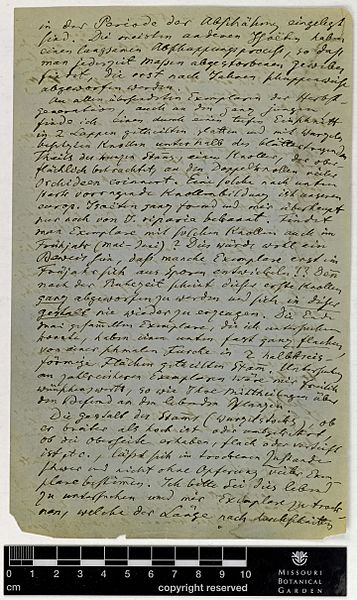 in der Periode der Abschährung eingelegt
sind. Die meisten anderen Isoëten haben
einen langsamen Abschuppungsproceß, so daß
man jederzeit Massen abgestorbenen Gewebes
findet, die erst nach Jahren schuppenweise
abgeworfen werden.
An allen übersandten Exemplaren der Herbst-
generation, auch an den ganz jungen,
finde ich einen durch eine tiefen Einschnitt
in 2 Lappen getheilten glatten und mit Wurzeln
besetzten Knollen unterhalb des blättertragenden
Theils des knospen Stam, einen Knollen, der ober-
flächlich betrachtet, an den Doppelknollen vieler
Orchideen erinnert. Ein solch nach unten
stark vorragende Knollenbildung ist unseren
europ. Isoëten ganz fremd und mir überhaupt
nur noch von I. riparia bekannt. Findet
man Exemplare mit solchen Knollen auch im
Frühjahr (Mai-Juni)? Dies würde wohl ein
Beweis sein, daß manche Exemplare erst im
Frühjahr sich aus Sporen entwickeln!? Denn
nach der Ruhezeit scheint dieser erste Knollen
ganz abgeworfen zu werden und sich in dieser
Gestalt nie wieder zu erzeugen. Die Ende
Mai gesammelten Exemplare, die ich untersuchen
konnte, haben einen unten fast ganz flachen,
von einer schmalen Furche in 2 halbkreis-
förmige Flächen getheilten Stam. Untersuchung
an zahlreicheren Exemplaren wäre mir freilich
wünschenswerth, so wie Ihre Mittheilungen über
den Befund an den lebenden Pflanzen.
Die Gestalt des Stams (Wurzelstocks), ob
er breiter als hoch ist oder umgekehrt,
ob die Oberseite erhaben, flach oder vertieft
ist etc., läßt sich im trockenen Zustande
schwer und nicht ohne Opferung vieler Exem-
plare bestimmen. Ich bitte Sie dies lebend
zu untersuchen und mir Exemplare zu trock-
nen, welche der Länge nach durchschnitten
0 1 2 3 4 5 6 7 8 9 10
cm
copyright reserved
MISSOURI
BOTANICAL
GARDEN